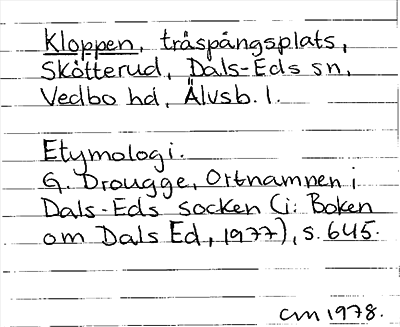 Kloppen, träspångsplats,
Skötterud, Dals-Eds sn,
Vedbo hd, Älvsb. l.
Etymologi.
G. Drougge, Ortnamnen i
Dals-Eds socken (i: Boken
om Dals Ed, 1977), s. 645.
CM 1978.